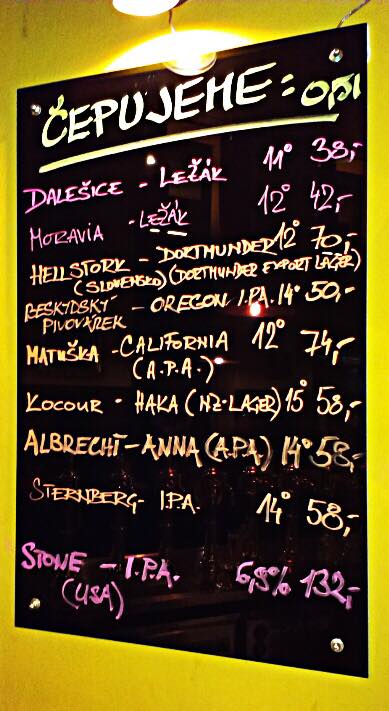 ČEPUJEME:
DALEŠICE - LEŽÁK 11° 38,-
MORAVIA - LEŽÁK 12° 42,-
HELLSTORK - DORTMUNDER 12° 70,-
(SLOVENSKO) (DORTMUNDER EXPORT LAGER)
BESKYDSKÝ - OREGON I.P.A. 14° 50,-
PIVOVÁREK
MATUŠKA - CALIFORNIA 12° 74,-
(A.P.A.)
KOCOUR - HAKA (NZ-LAGER) 15° 58,-
ALBRECHT - ANNA (A.P.A) 14° 58,-
STERNBERG - I.P.A. 14° 58,-
STONE - I.P.A. 6,9% 132,-
(USA)